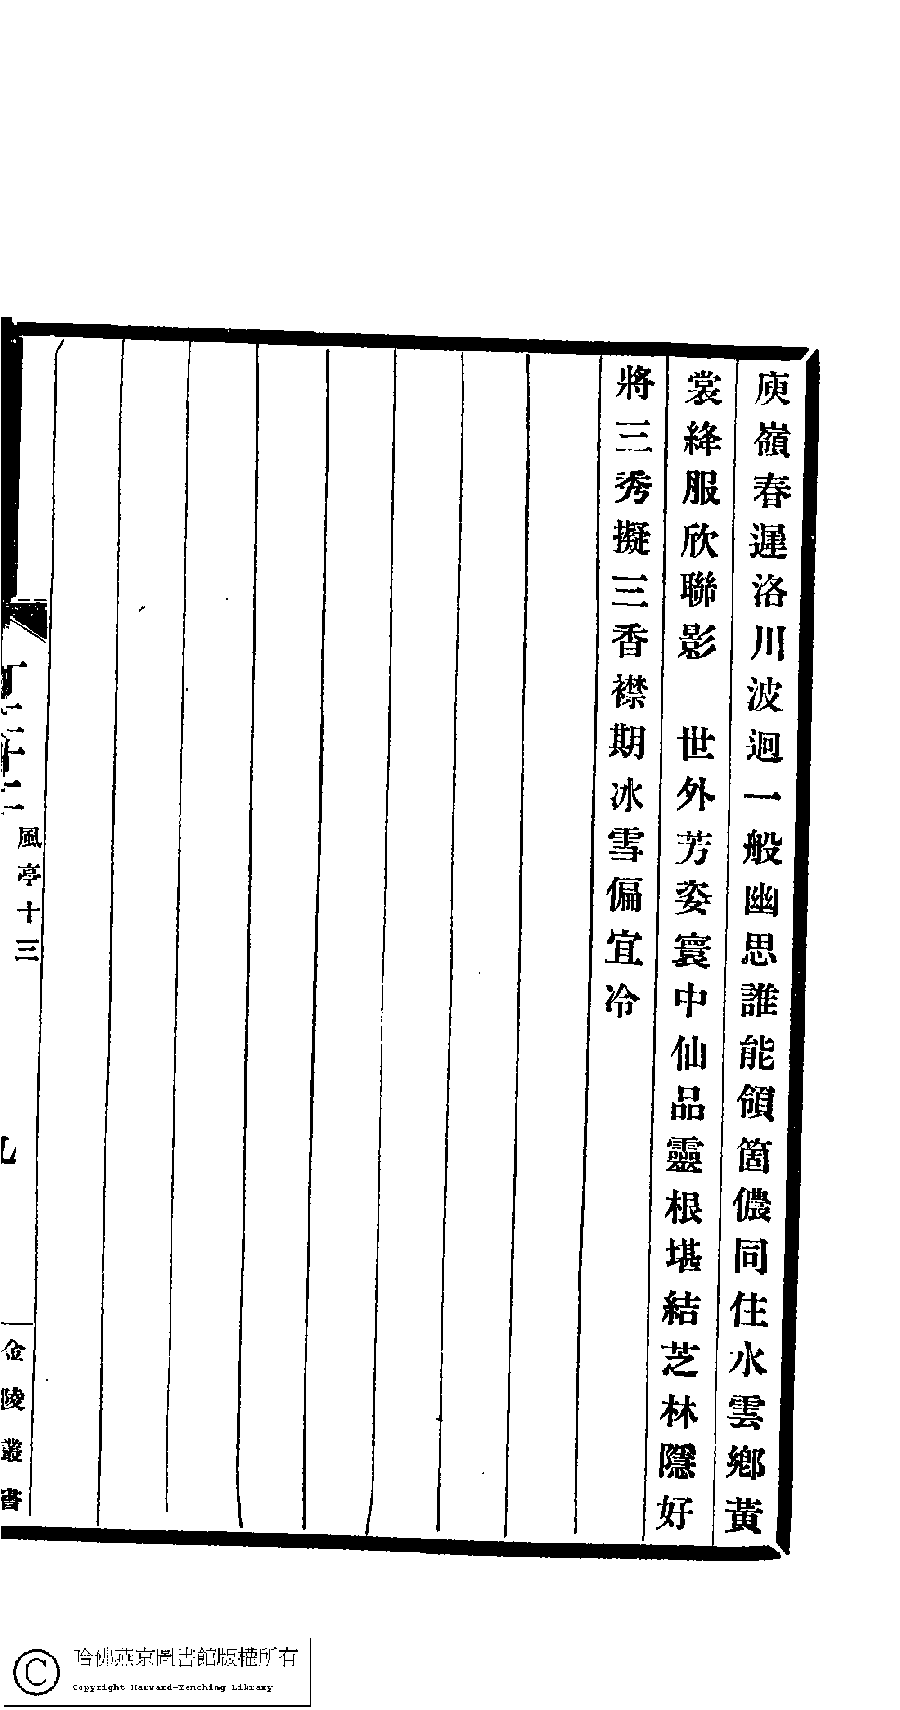 庾嶺春遲洛川波迥一般幽思誰能領箇儂同住水雲鄉黃
裳絳服欣聯影　世外芳姿寰中仙品靈根堪結芝林隱好
將三秀擬三香襟期冰雪偏宜冷
風亭十三
金陵叢書
哈佛燕京圖書館版權所有
Copyright Harvard-Yenching Library